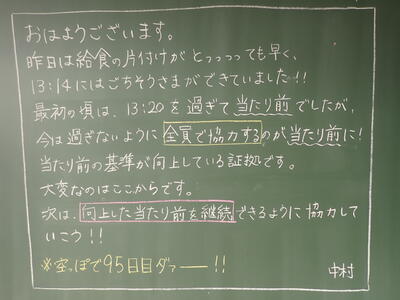 おはようございます。
昨日は給食の片付けがとっっっっても早く、
13:14にはごちそうさまができていました!!
最初の頃は、13:20を過ぎて当たり前でしたが、
今は過ぎないように全員で協力するのが当たり前に!
当たり前の基準が向上している証拠です。
大変なのはここからです。
次は、向上した当たり前を継続できるように協力して
いこう!!
※空っぽで95日目ダァー!!
中村